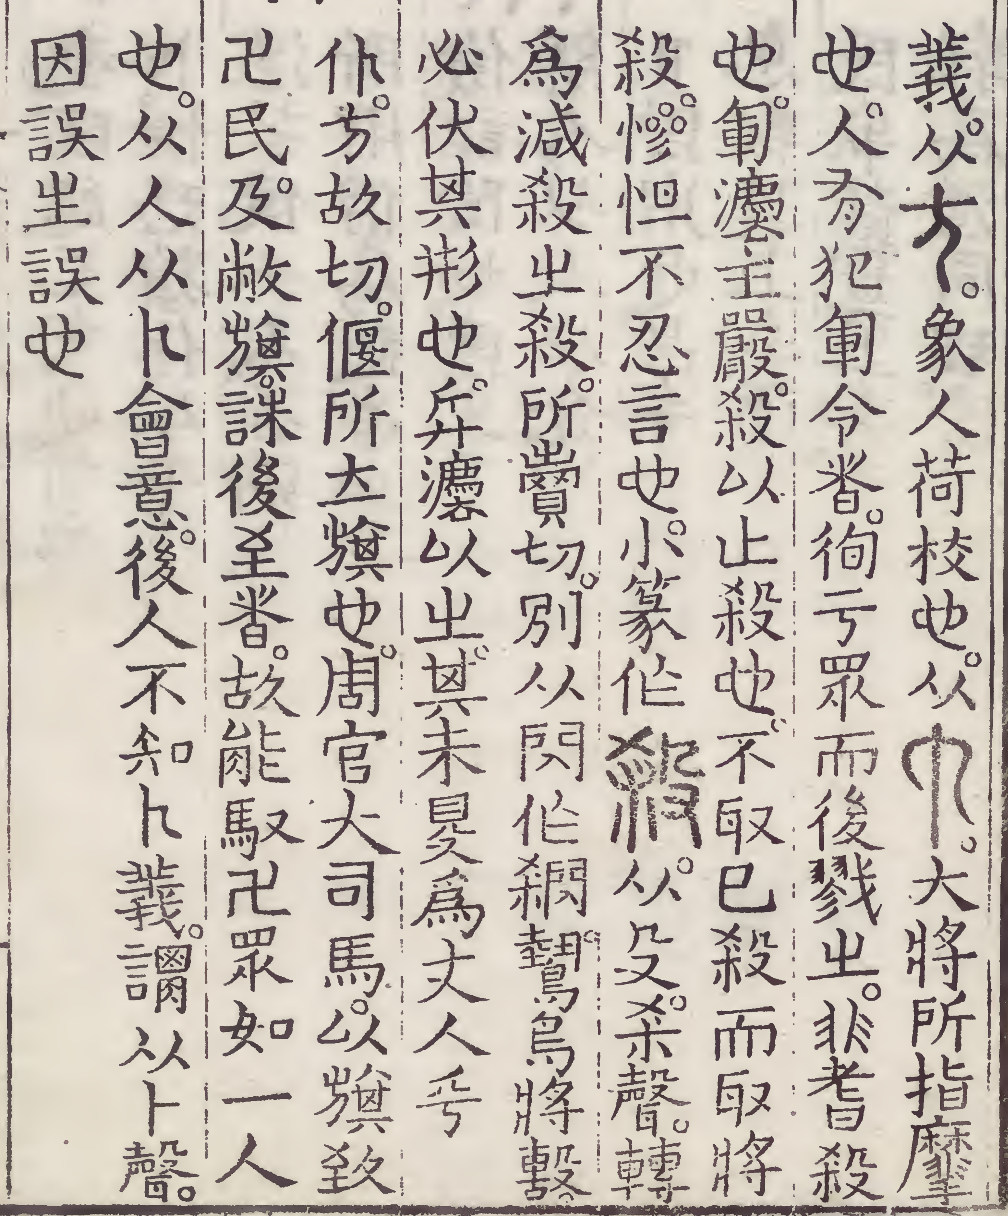 義。从𠂇。象人荷校也。从巾。大將所指麾
也。人有犯軍令者。徇亏眾而後戮之。非耆殺
也。軍灋主嚴。殺以止殺也。不取已殺而取將
殺。慘怛不忍言也。小篆作殺。从殳杀聲。轉
爲減殺之殺。所賣切。別从閃作𢿱。鷙鳥將擊
必伏其形也。弃灋以之。其未㚆爲丈人乎
仆。方故切。偃所立旗也。周官大司馬。以旗致
卍民。及敝旗。誅後至者。故能馭卍眾如一人
也。从人从卜會意。後人不知卜義。謂以卜聲。
因誤生誤也